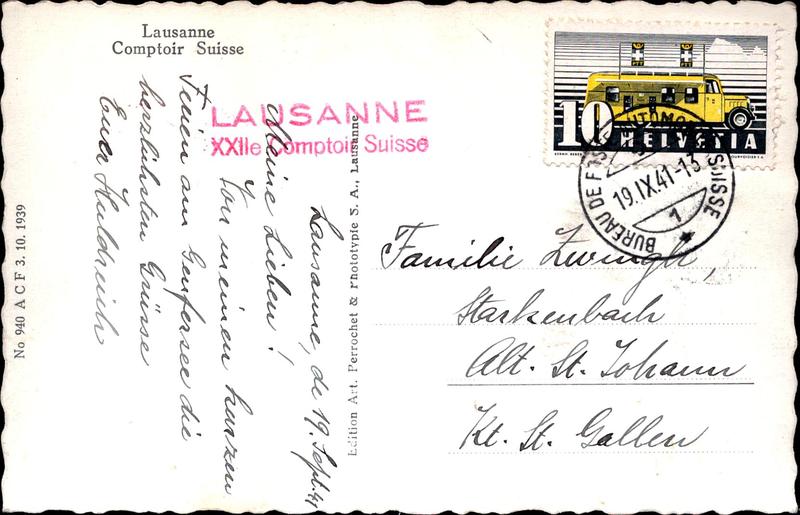 Lausanne
Comptoir Suisse
LAUSANNE
XXIIe Comptoir Suisse
PTT
PTT
10 HELVETIA
COURVOISIER S.A.
BUREAU DE POSTE AUTOMOBILE SUISSE
19.IX.41-13
1
Lausanne, de 19. Sept. 41
Meine Lieben!
Von meinen kurzen
Ferien am Genfersee die
herzlichsten Grüsse
Euer Huldreich
Familie Zwingli,
Starkenbach
Alt. St. Johann
Kt. St. Gallen
Edition Art. Perrochet & Phototypie S. A., Lausanne
No 940 A C F 3. 10. 1939